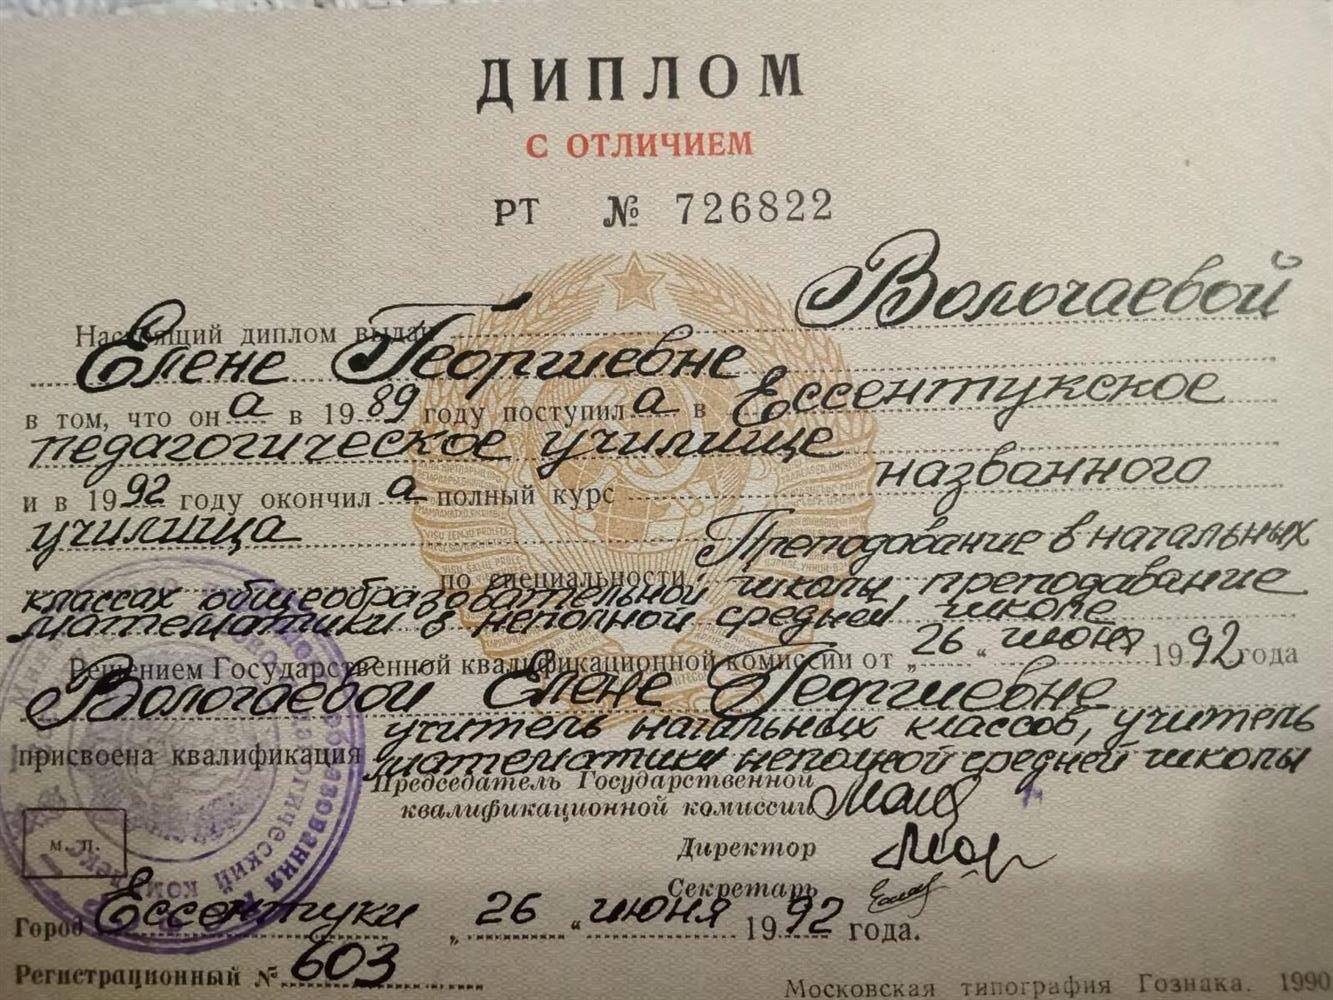 ДИПЛОМ
С ОТЛИЧИЕМ
РТ № 726822
Настоящий диплом выдан Волочаевой
Елене Георгиевне
в том, что он а в 19 89 году поступил а в Ессентукское
педагогическое училище
и в 19 92 году окончил а полный курс названного
училища
по специальности Преподавание в начальных
классах общеобразовательной школы, преподавание
математики в неполной средней школе
Решением Государственной квалификационной комиссии от „ 26 “ июня 19 92 года
Волочаевой Елене Георгиевне
присвоена квалификация учитель начальных классов, учитель
математики неполной средней школы
Председатель Государственной
квалификационной комиссии
Директор
Секретарь
м. п.
Город Ессентуки „ 26 “ июня 19 92 года.
Регистрационный № 603
Московская типография Гознака. 1990